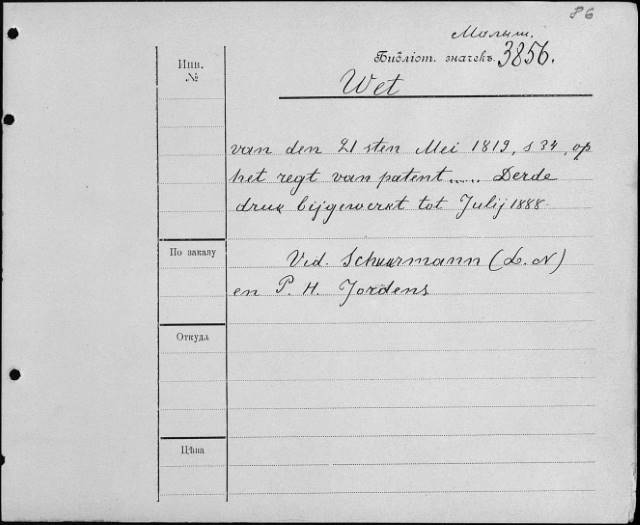 86
Малыш.
Библіот. значекъ. 3856.
Инв. №
Wet
van den 21 sten Mei 1819, s 34, op
het regt van patent...... Derde
druk bijgewerkt tot Julij 1888.
По заказу
Vid. Schuurmann (L. N)
en P. H. Jordens
Откуда
Цѣна